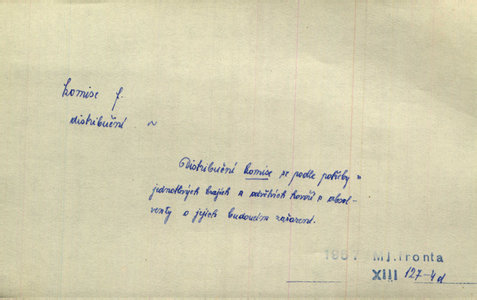 komise f.
distribuční ~
Distribuční komise se podle potřeby v
jednotlivých krajích a odvětvích hovoří s absol-
venty o jejich budoucím zařazení.
1967 Ml.fronta
XIII 127-4d